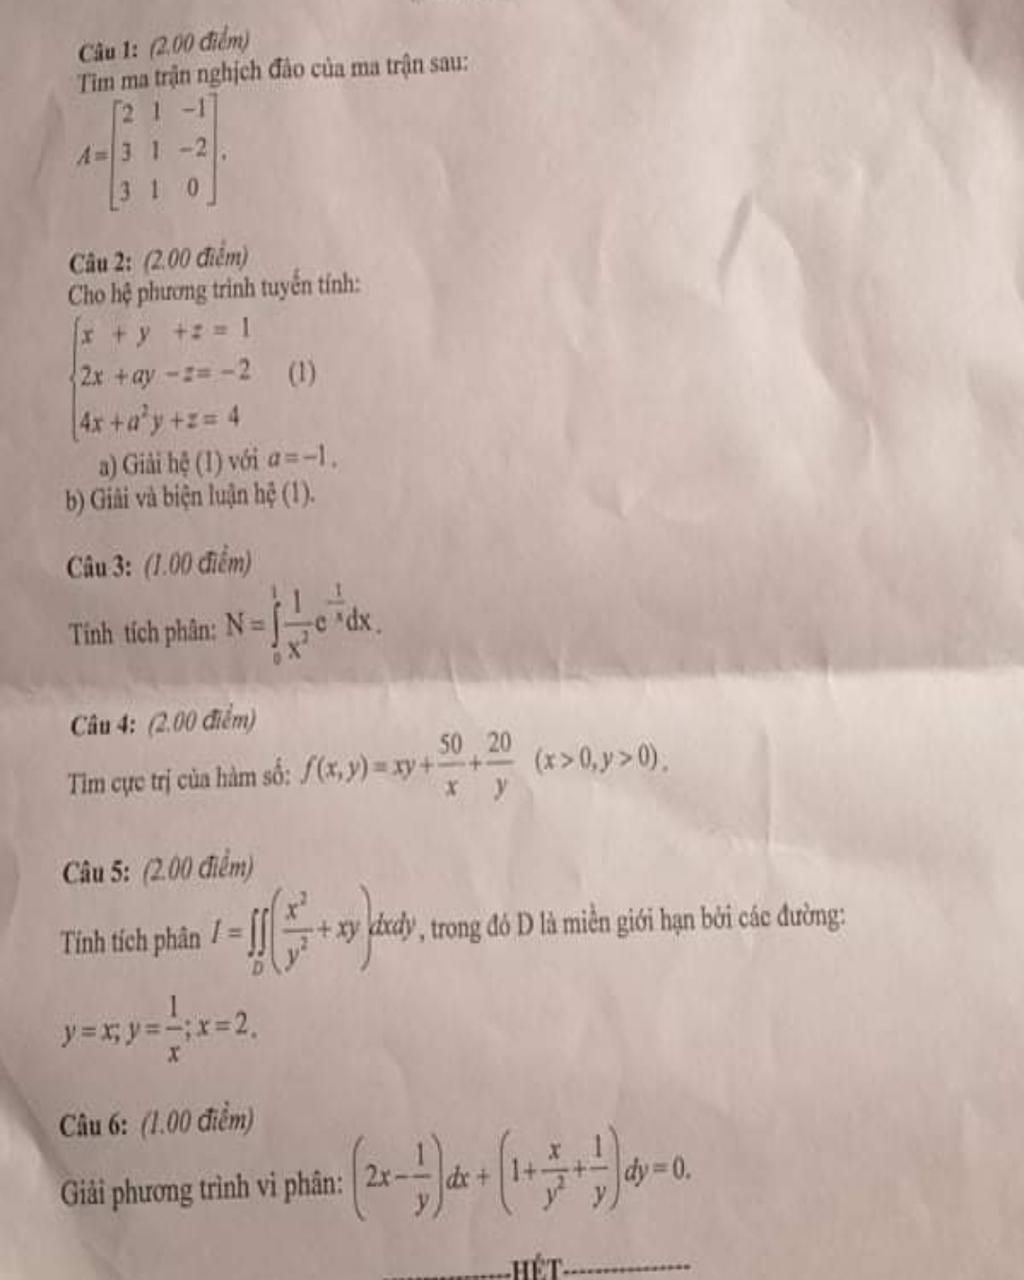 Câu 1: (2.00 điểm)
Tìm ma trận nghịch đảo của ma trận sau:
A = [2 1 −1
3 1 −2
3 1 0].
Câu 2: (2.00 điểm)
Cho hệ phương trình tuyến tính:
{x + y + z = 1
2x + ay − z = −2 (1)
4x + a²y + z = 4
a) Giải hệ (1) với a = −1.
b) Giải và biện luận hệ (1).
Câu 3: (1.00 điểm)
Tính tích phân: N = ∫₀¹ 1/x² e^(1/x) dx.
Câu 4: (2.00 điểm)
Tìm cực trị của hàm số: f(x, y) = xy + 50/x + 20/y (x > 0, y > 0).
Câu 5: (2.00 điểm)
Tính tích phân I = ∬_D (x²/y² + xy) dxdy, trong đó D là miền giới hạn bởi các đường:
y = x; y = 1/x; x = 2.
Câu 6: (1.00 điểm)
Giải phương trình vi phân: (2x − 1/y) dx + (1 + x/y² + 1/y) dy = 0.
---------------HẾT---------------